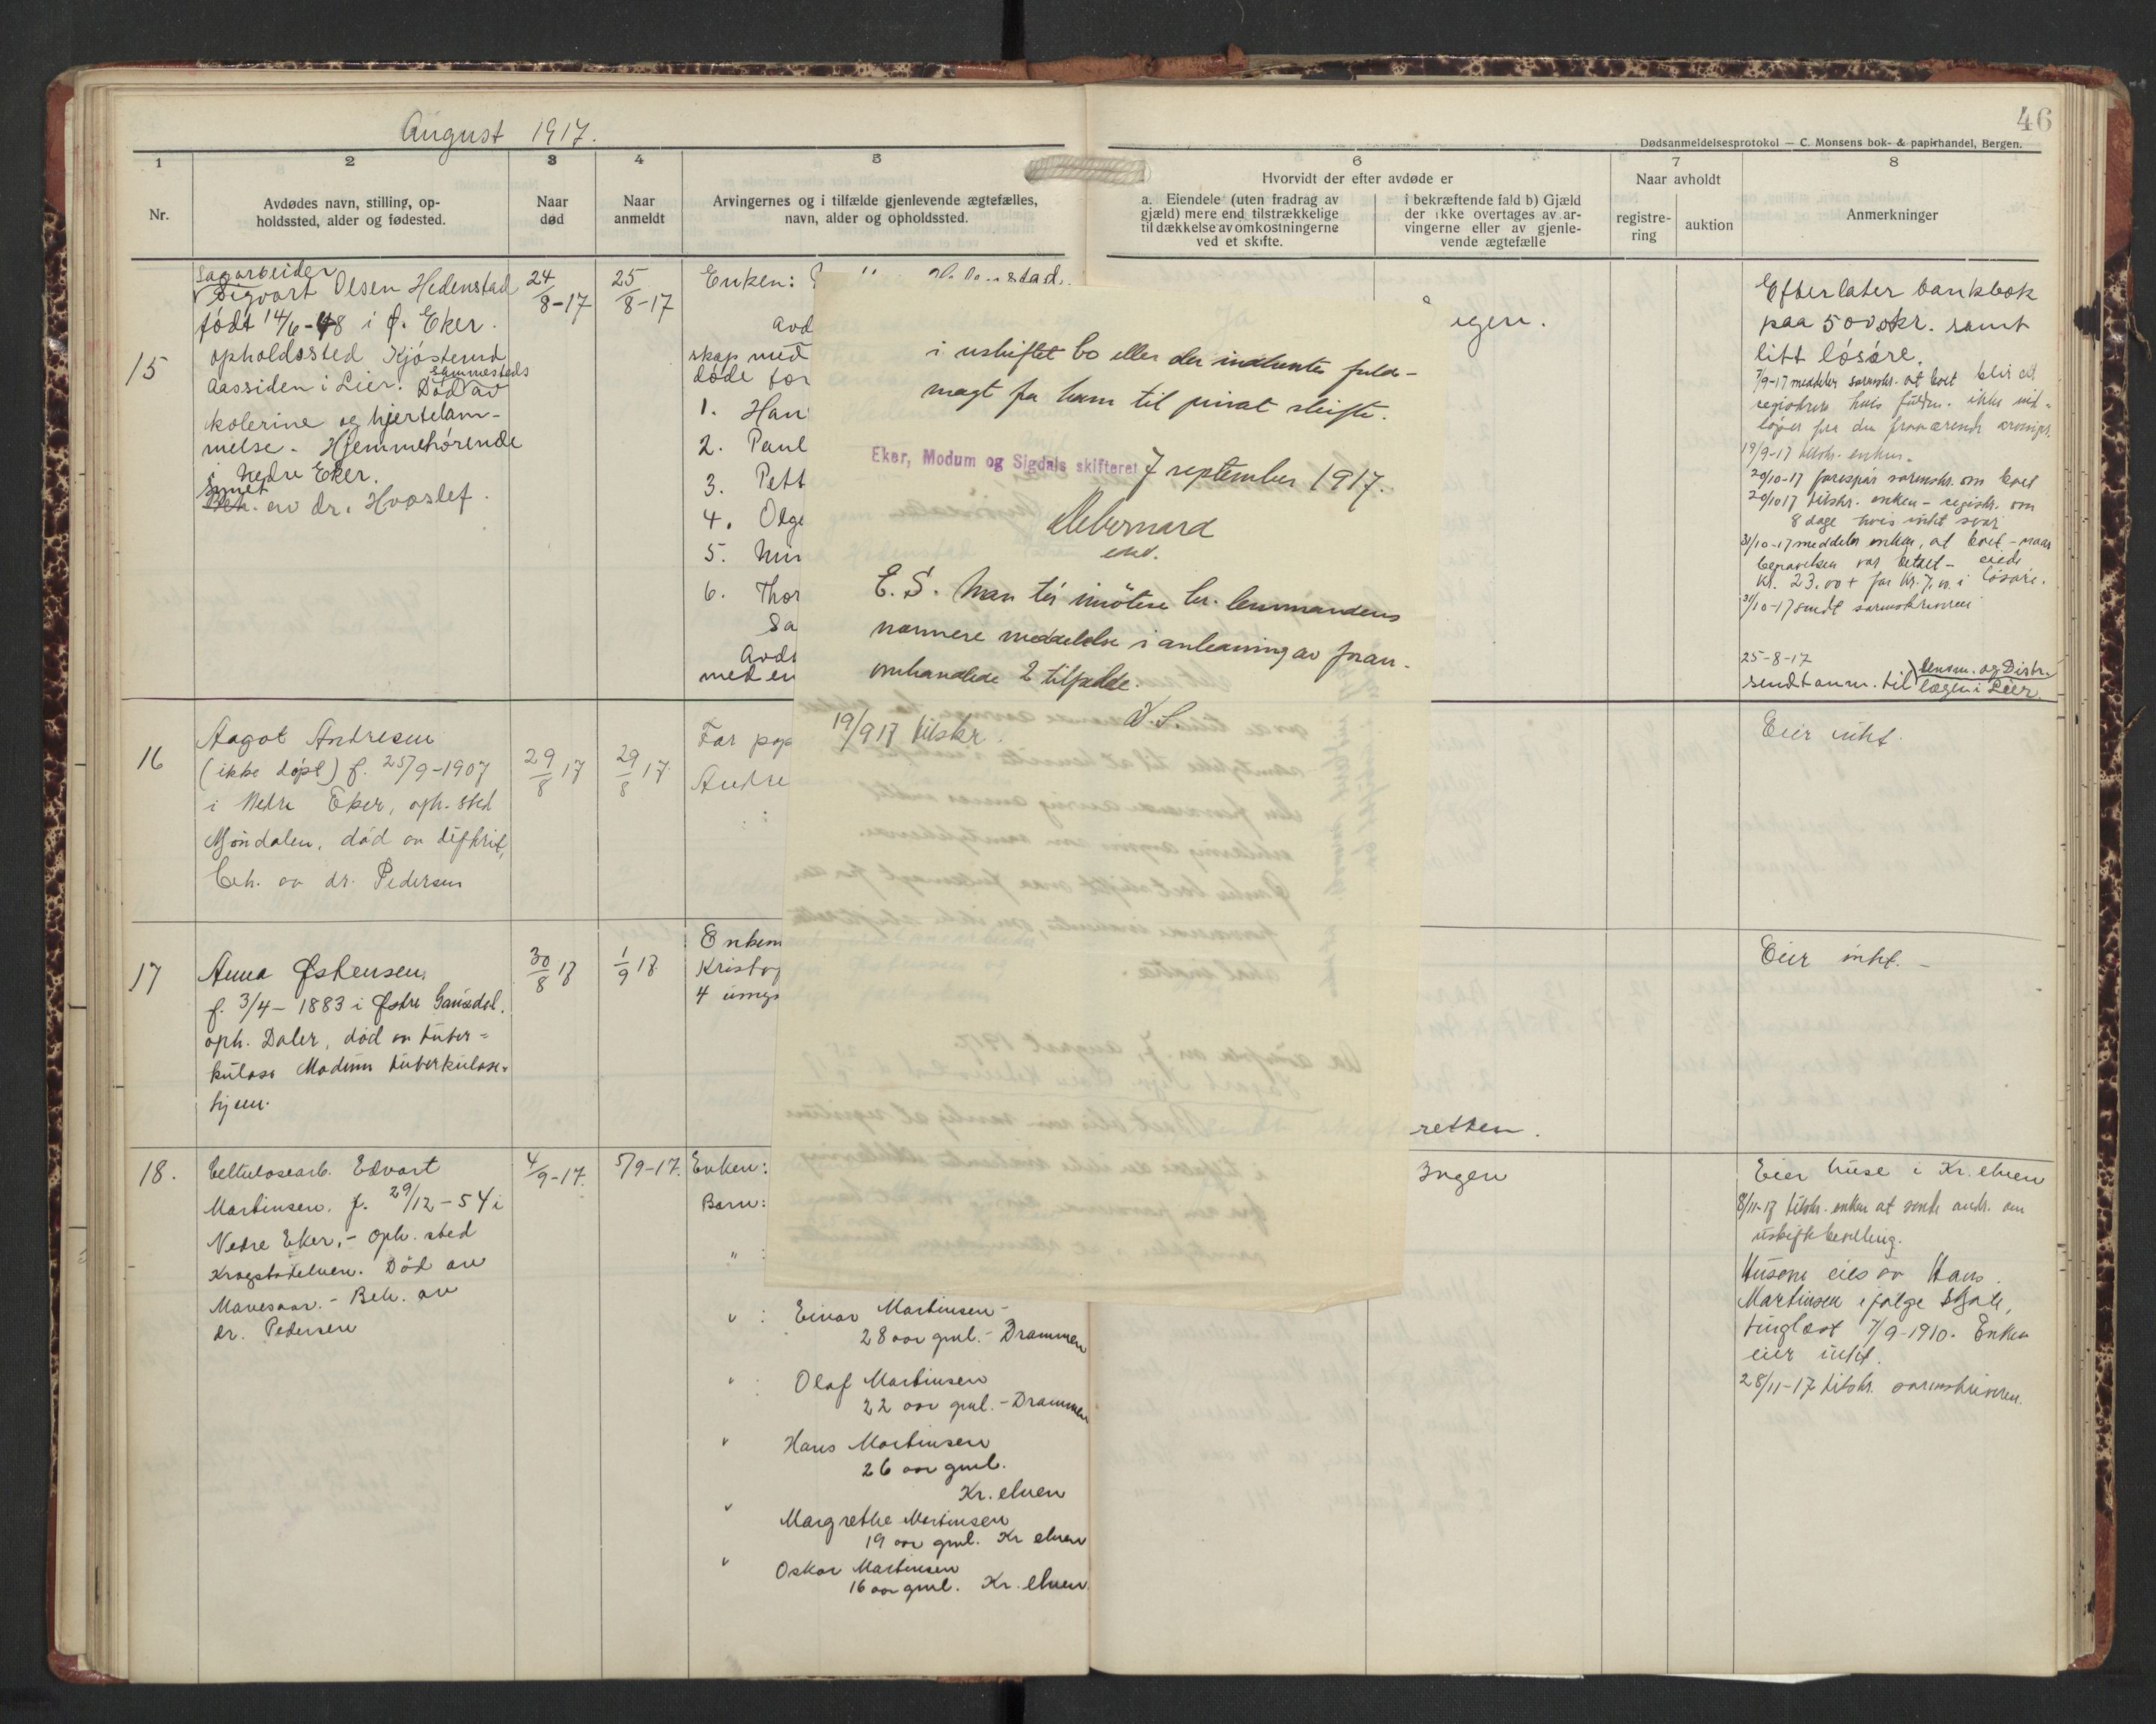 August 1917.
46
Dødsanmeldelsesprotokol — C. Monsens bok- & papirhandel, Bergen.
1
2
3
4
5
6
7
8
Nr.
Avdødes navn, stilling, op-
holdssted, alder og fødested.
Naar
død
Naar
anmeldt
Arvingernes og i tilfælde gjenlevende ægtefælles,
navn, alder og opholdssted.
Hvorvidt der efter avdøde er
a. Eiendele (uten fradrag av
gjæld) mere end tilstrækkelige
til dækkelse av omkostningerne
ved et skifte.
i bekræftende fald b) Gjæld
der ikke overtages av ar-
vingerne eller av gjenle-
vende ægtefælle
Naar avholdt
registre-
ring
auktion
Anmerkninger
15
Sagarbeider
Sigvart Olsen Hedenstad
født 14/6-48 i Ø. Eker.
opholdssted Kjøsterud
Aassiden i Lier. Død av
sammesteds
kolerine og hjertelam-
melse. Hjemmehørende
i Nedre Eker.
synet
Beh. av dr. Hvoslef.
24/8-17
25/8-17
Enken:
avd
skap med
døde for
1. Han
2. Paul
3. Pett
4. Olge
5. Min
6. Thor
Sa
Avd
med en
igen.
Efterlater bankbok
paa 500 kr. samt
litt løsøre.
7/9-17 meddeler sorenskr. at boet blir at
registrere hvis fuldm. ikke ind-
løper fra den fraværende arving.
19/9-17 tilskr. enken.
20/10-17 forespør sorenskr. om boet
20/10 17 tilskr. enken - registr. om
8 dage hvis intet svar
31/10-17 meddeler enken, at boet - naar
begravelsen var betalt - eiede
kr. 23.00 + for kr. 7.00 i løsøre.
31/10-17 sendt sorenskriveren
25-8-17
sendt anm. til lensm. og Distr.
lægen i Lier.
i uskiftet bo eller der indhentes fuld-
magt fra ham til privat skifte.
Eker, Modum og Sigdals skifteret 7 september 1917.
E. S. Man tør imøtese hr. lensmandens
nærmere meddelelse i anledning av foran-
omhandlede 2 tilfælde.
D. S.
19/9 17 tilskr.
16
Aagot Andresen
(ikke døpt) f. 25/9-1907
i Nedre Eker, oph. sted
Mjøndalen, død av difterit,
Beh. av dr. Pedersen
29/8 17
29/8 17.
Far pap
Andre
Eier intet.
17
Anna Østensen,
f. 3/4-1883 i Østre Gausdal.
oph. Daler, død av tuber-
kulose Modum tuberkulose-
hjem.
30/8 17
1/9 17.
Enkem
Kristof
4 umyn
retten.
Eier intet. -
18.
Cellulosearb. Edvart
Martinsen. f. 29/12-54 i
Nedre Eker, - oph. sted
Krogstadelven. Død av
Mavesaar. - Beh. av
dr. Pedersen
4/9-17.
5/9-17.
Enken:
Barn:
" :
" : Einar Martinsen -
28 aar gml. - Drammen
" : Olaf Martinsen
22 aar gml. - Drammen
" Hans Martinsen
26 aar gml.
Kr. elven
" Margrethe Martinsen
19 aar gml. Kr elven
" Oskar Martinsen
16 aar gml. Kr. elven.
Ingen
Eier huse i Kr. elven
8/11-17 tilskr. enken at sende andr. om
uskiftebevilling.
Husene eies av Hans
Martinsen ifølge skjøte,
tinglæst 7/9-1910. Enken
eier intet.
28/11-17 tilskr. sorenskriveren.